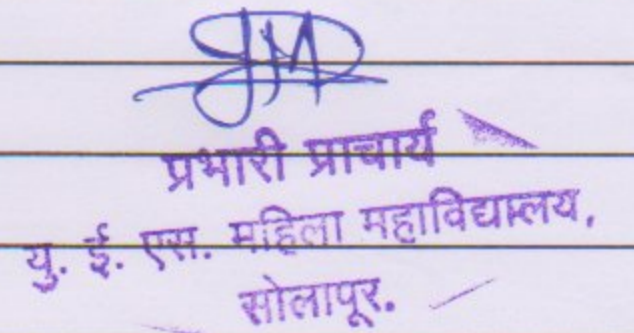 प्रभारी प्राचार्य
यु. ई. एस. महिला महाविद्यालय,
सोलापूर.